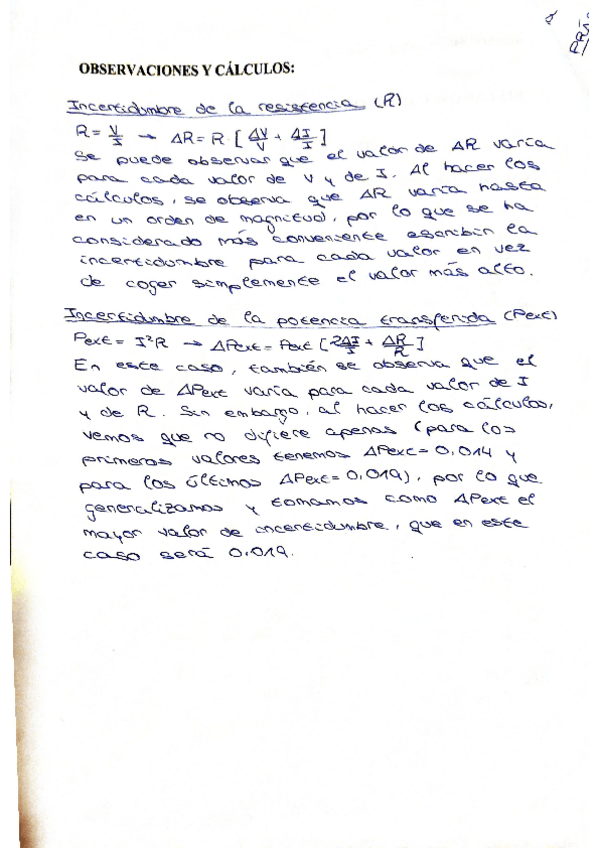 2
PRÁ
OBSERVACIONES Y CÁLCULOS:
Incertidumbre de la resistencia (R)
R = V/I → ΔR = R · [ΔV/V + ΔI/I]
Se puede observar que el valor de ΔR varía
para cada valor de V y de I. Al hacer los
cálculos, se observa que ΔR varía hasta
en un orden de magnitud, por lo que se ha
considerado más conveniente escribir la
incertidumbre para cada valor en vez
de coger simplemente el valor más alto.
Incertidumbre de la potencia transferida (Pext)
Pext = I²R → ΔPext = Pext [2ΔI/I + ΔR/R]
En este caso, también se observa que el
valor de ΔPext varía para cada valor de I
y de R. Sin embargo, al hacer los cálculos,
vemos que no difiere apenas (para los
primeros valores tenemos ΔPext = 0.014 y
para los últimos ΔPext = 0.019), por lo que
generalizamos y tomamos como ΔPext el
mayor valor de incertidumbre, que en este
caso será 0.019.